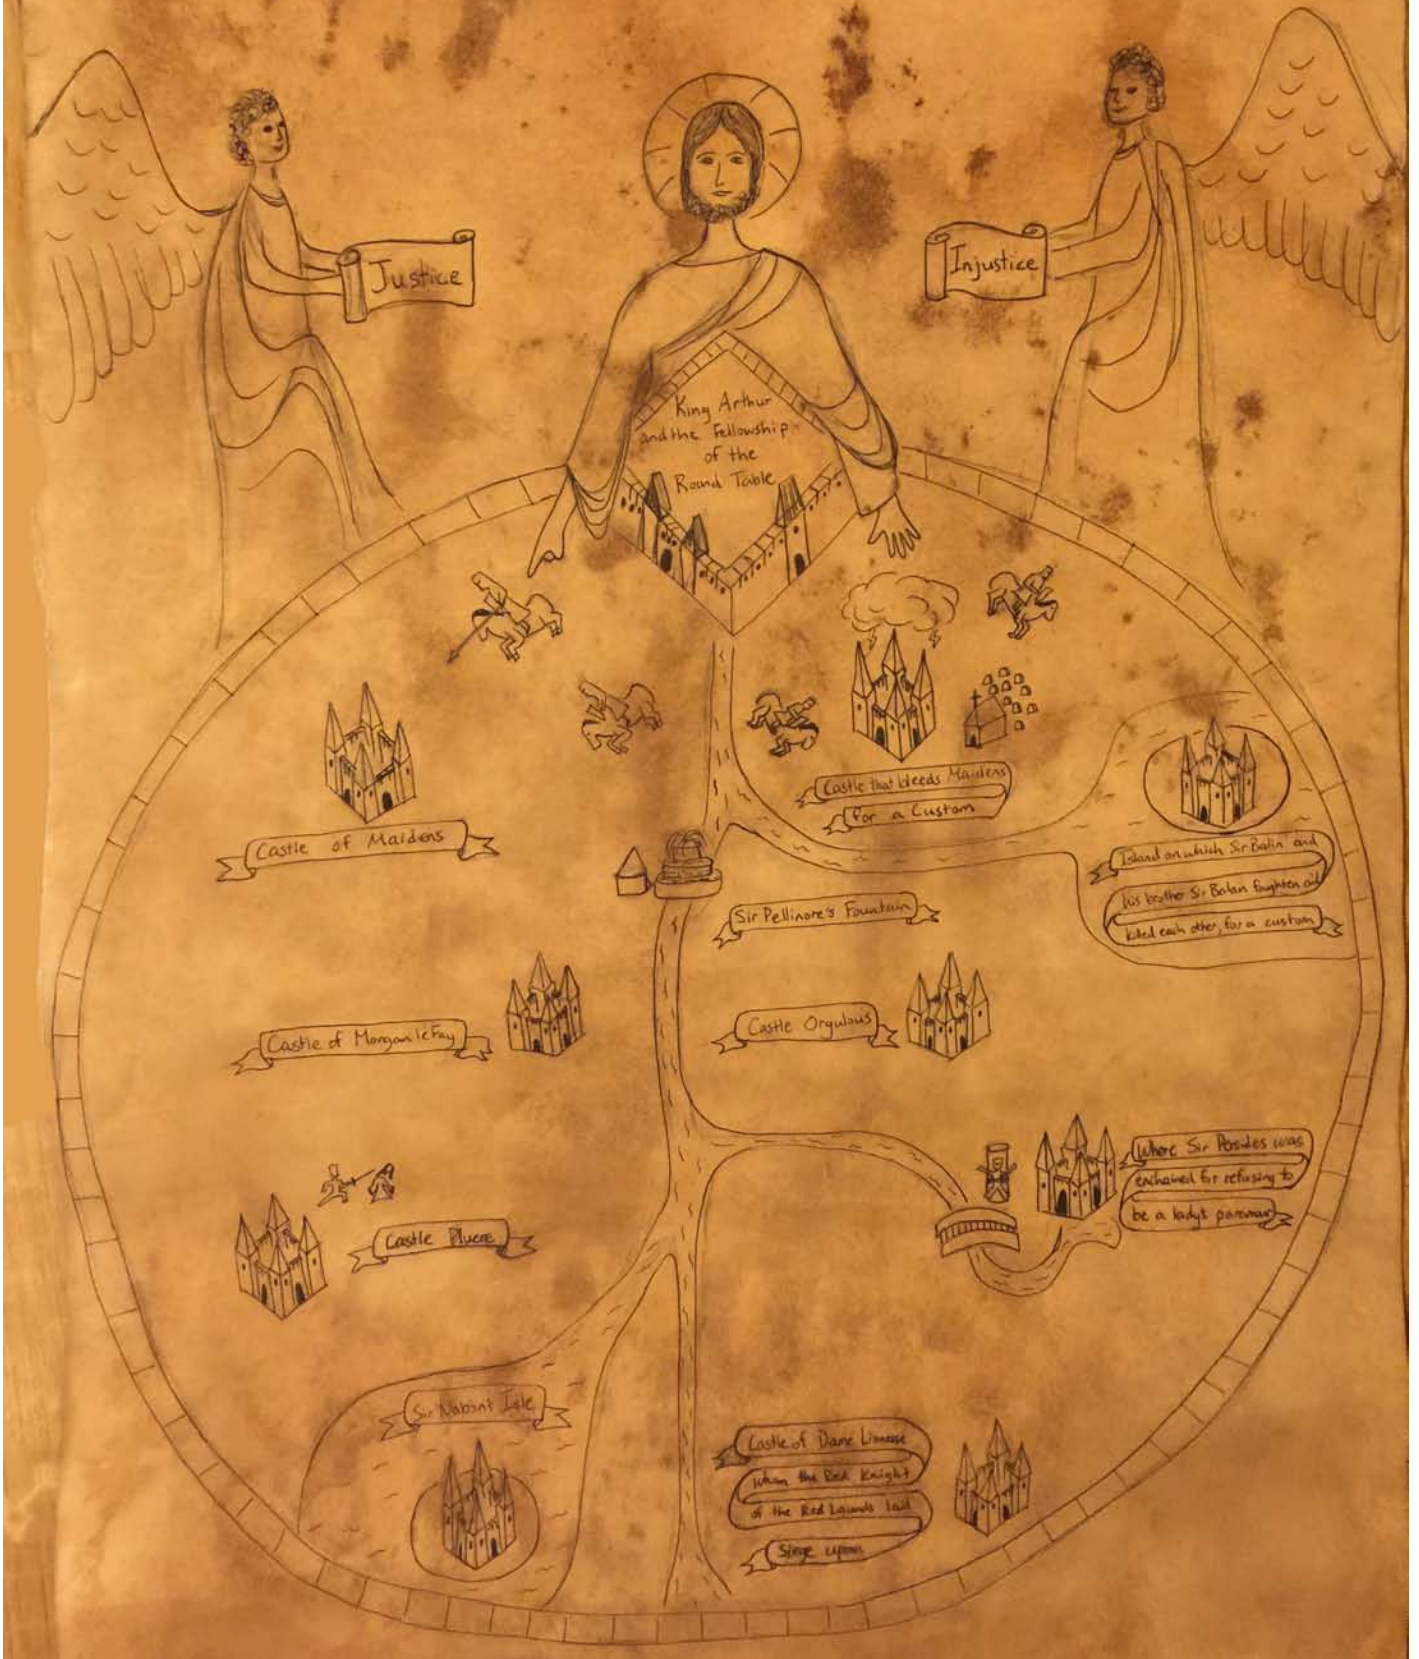 Justice
Injustice
King Arthur
and the Fellowship
of the
Round Table
Castle that bleeds Maidens
for a Custom
Castle of Maidens
Island on which Sir Balin and
his brother Sir Balan foughten and
killed each other, for a custom
Sir Pellinore's Fountain
Castle of Morgan le Fay
Castle Orgulous
Where Sir Persides was
enchained for refusing to
be a lady's paramour
Castle Pluere
Sir Nabon's Isle
Castle of Dame Lionesse
whom the Red Knight
of the Red Launds laid
Siege upon